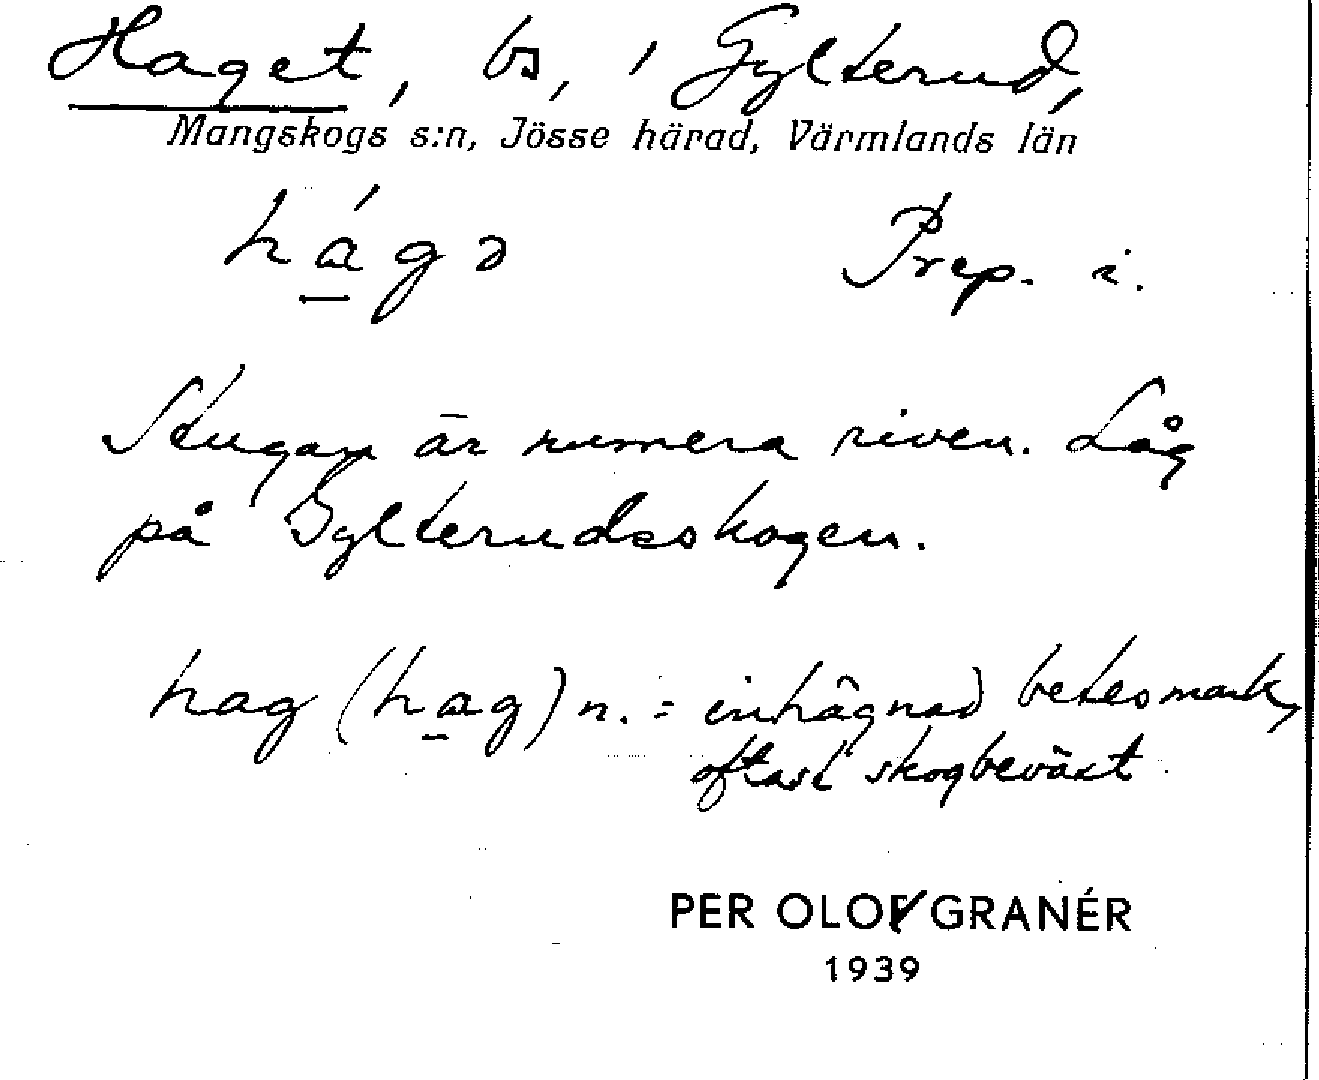 Haget, bs, i Gylterud,
Mangskogs s:n, Jösse härad, Värmlands län
hágə Prep. i.
Stugan är numera riven. Låg
på Gylterudsskogen.
hag (hag) n. = inhägnad betesmark,
oftast skogbeväxt
PER OLOF GRANÉR
1939